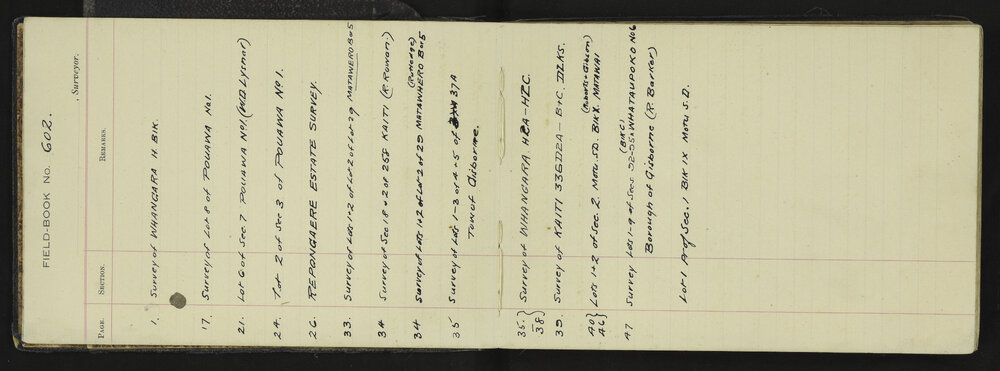 FIELD-BOOK No. 602.
, Surveyor.
PAGE. SECTION. REMARKS.
1. Survey of WHANGARA H. BIK.
17. Survey of Lot 8 of POUAWA No1.
21. Lot 6 of Sec. 7 POUAWA No1. (W.D. Lysnar)
24. Lot 2 of Sec 3 of POUAWA No 1.
26. REPONGAERE ESTATE SURVEY.
33. Survey of Lots 1+2 of Lot 2 of Lot 29 MATAWERO B+5
34 Survey of Sec 18 + 2 of 258 KAITI (R. Rowan.)
(Rutledge)
34 Survey of Lots 1+2 of Lot 2 of 29 MATAWHERO B+5
35 Survey of Lots 1-3 of 4+5 of 37A
Town of Gisborne.
35.} Survey of WHANGARA H2A-H2C.
38}
39. Survey of KAITI 336D2A - B+C, DLKS.
(Roberts + Gibson)
40} Lots 1+2 of Sec. 2. Motu SD. BIK X. MATAWAI
46}
(BIK C)
47 Survey Lots 1-9 of Secs 32-35 WHATAUPOKO No6
Borough of Gisborne (R. Barker)
Lot 1 of Sec. 1 BIK IX Motu S.D.